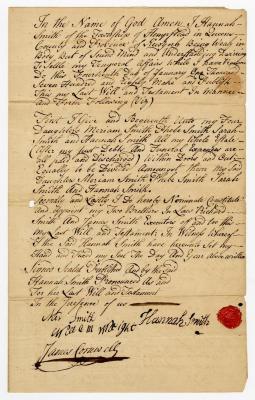 In the Name of God Amen I Hannah
Smith of the Township of Hempstead in Queens
County and Province of Newyork Being Weak in
Body But of Sound Mind and Understanding Desires
To Settle my Temporal Affairs While I have
Do this Fourteenth Day of January One Thousand
Seven Hundred and Publish
This my Last Will and Testament In Manner
and Form Following (Viz)
First I Give and Bequeath Unto my Four
Daughters Meriam Smith Phebe Smith Sarah
Smith and Hannah Smith All my Whole
After my Just Debts and Funeral Expenses are
all paid and Discharged Within Doors and Out
Equally to be Divided Amongst them my Said
Daughters Meriam Smith Phebe Smith Sarah
Smith And Hannah Smith
Secondly and Lastly I Do hereby Nominate Constitute
and Appoint my Two Brothers In Law Richard
Smith And Smith Executors of and for this
my Last Will and Testament In Witness Whereof
I the Said Hannah Smith have hereunto Set my
Hand and Fixed my Seal The Day And Year above written
Signed Sealed Published And by the Said
Hannah Smith Pronounced As and
For her Last Will and Testament
In the Presence of us
Smith
Hannah Smith
James Cornwell